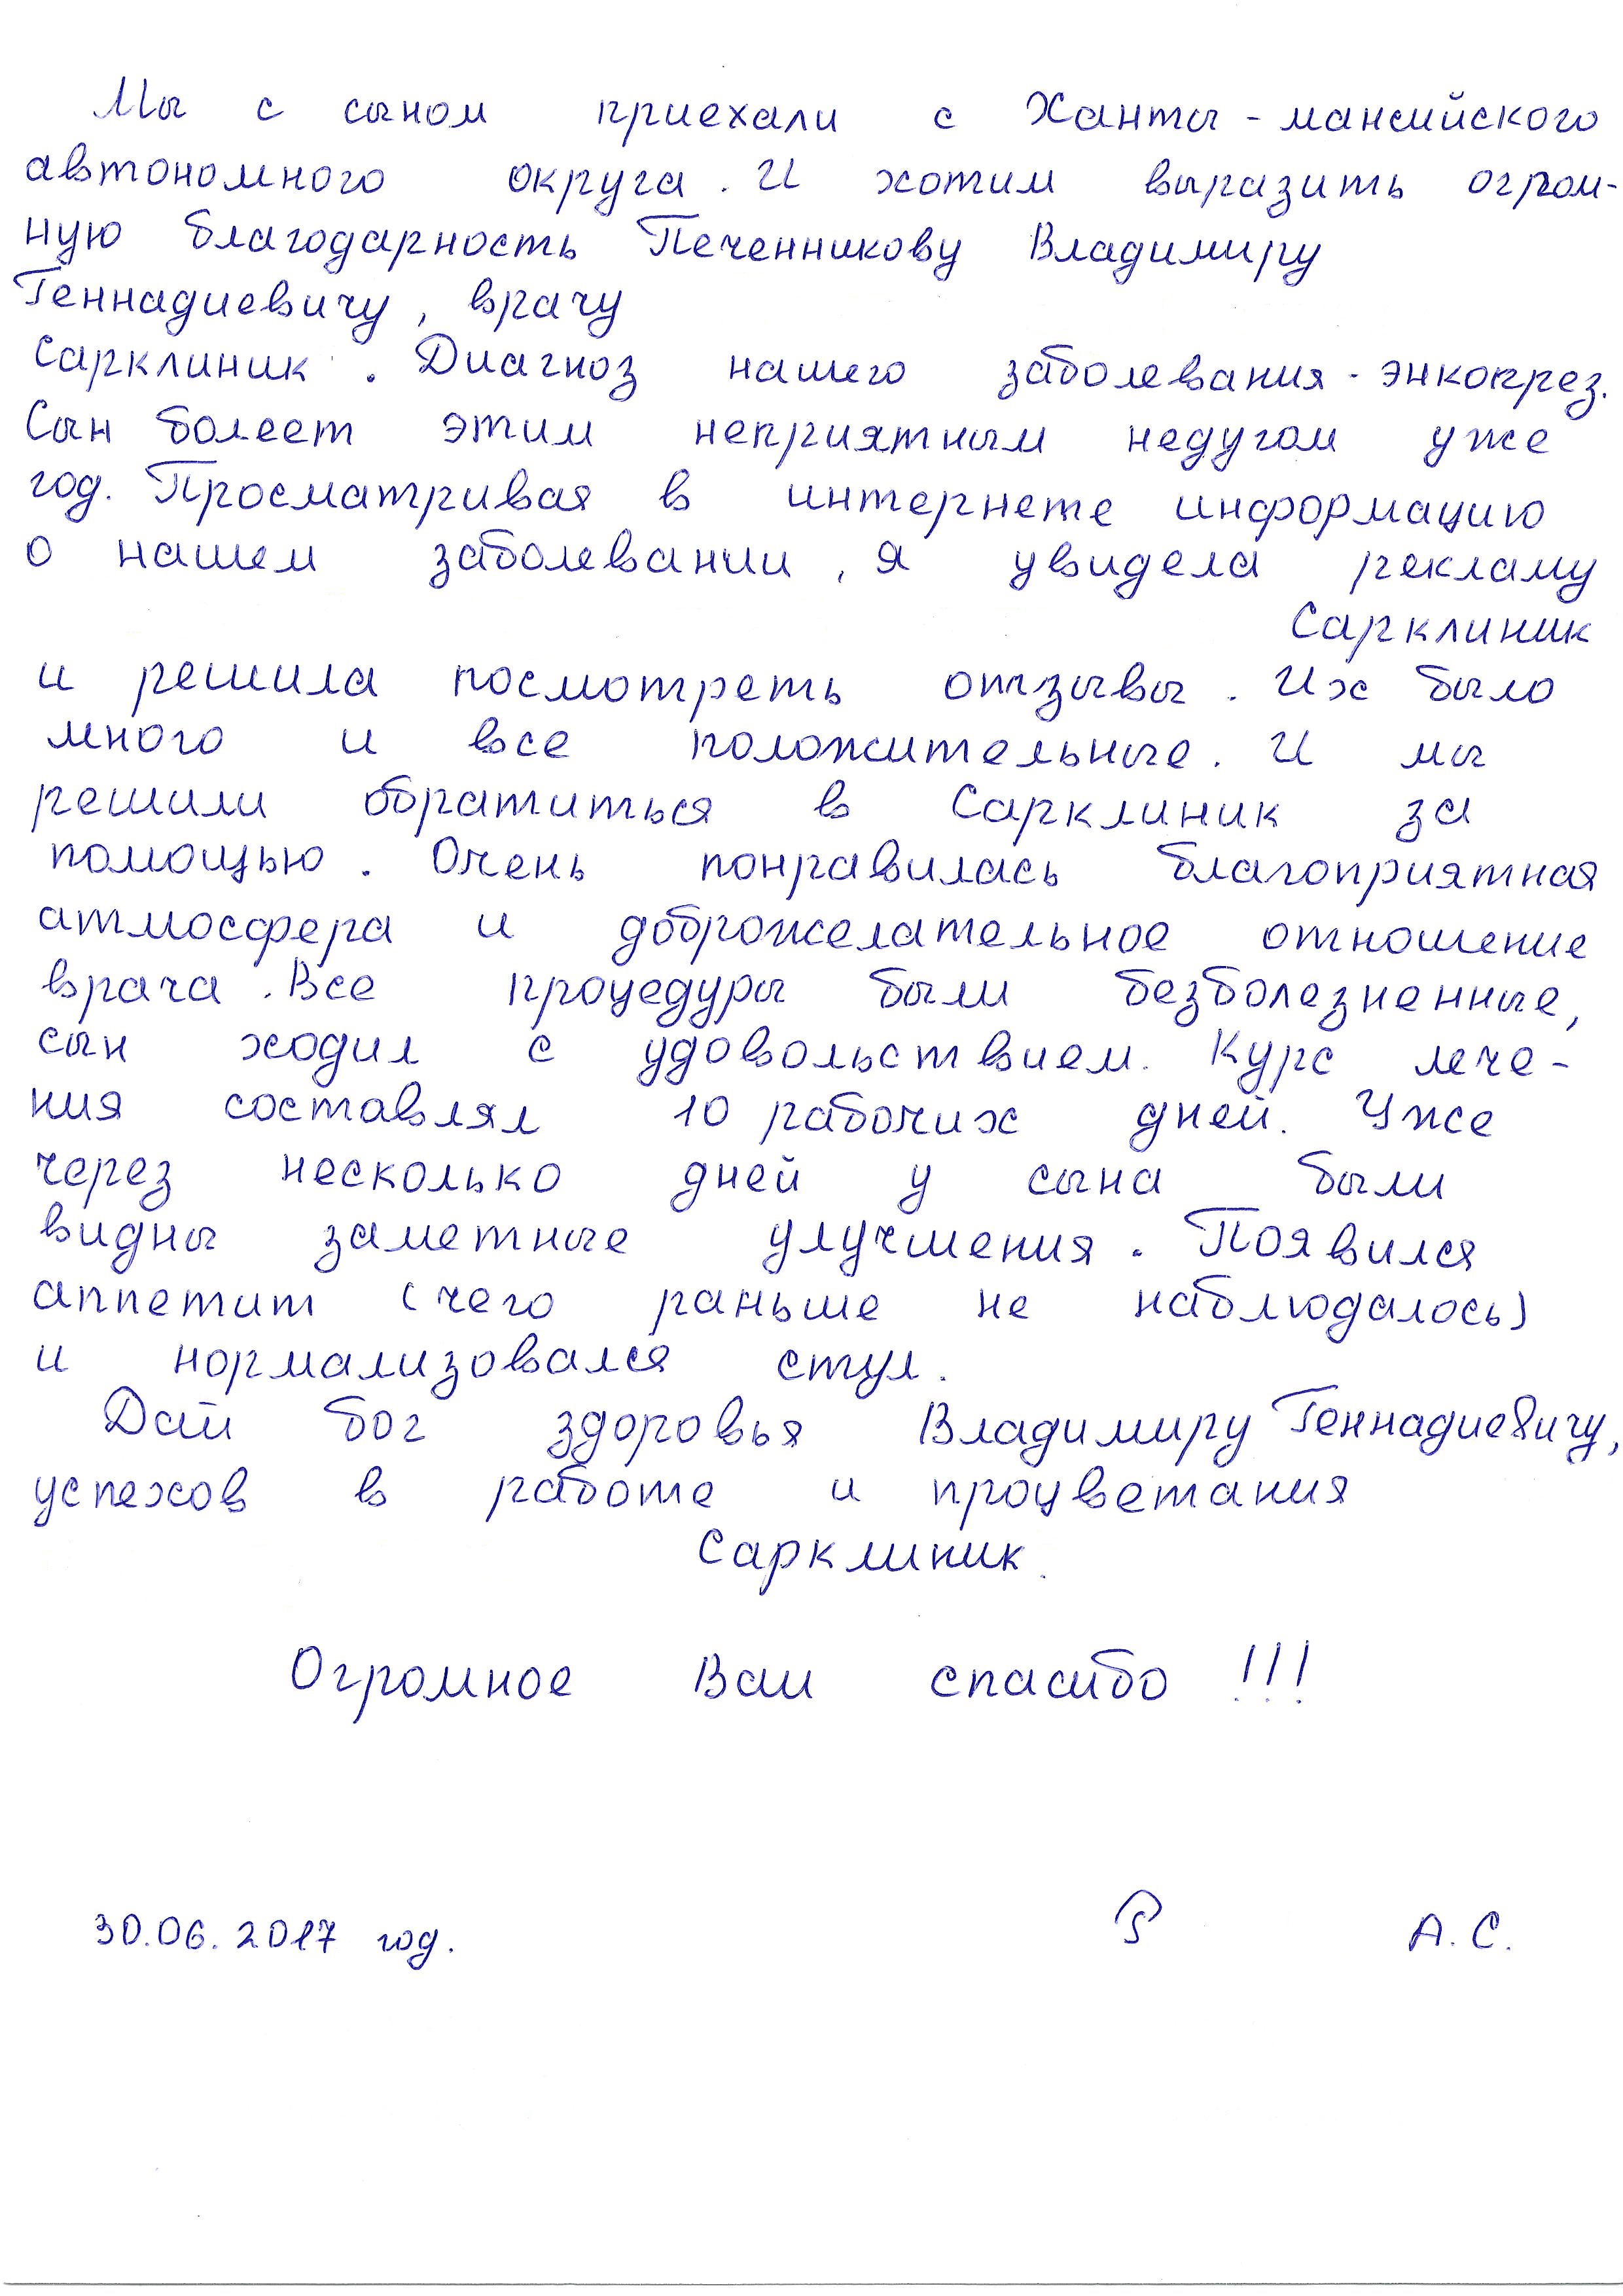 Мы с сыном приехали с Ханты - мансийского
автономного округа. И хотим выразить огром-
ную благодарность Печенникову Владимиру
Геннадиевичу, врачу
Сарклиник. Диагноз нашего заболевания - энкопрез.
Сын болеет этим неприятным недугом уже
год. Просматривая в интернете информацию
о нашем заболевании, я увидела рекламу
Сарклиник
и решила посмотреть отзывы. Их было
много и все положительные. И мы
решили обратиться в Сарклиник за
помощью. Очень понравилась благоприятная
атмосфера и доброжелательное отношение
врача. Все процедуры были безболезненные,
сын ходил с удовольствием. Курс лече-
ния составлял 10 рабочих дней. Уже
через несколько дней у сына были
видны заметные улучшения. Появился
аппетит (чего раньше не наблюдалось)
и нормализовался стул.
Дай бог здоровья Владимиру Геннадиевичу,
успехов в работе и процветания
Сарклиник.
Огромное Вам спасибо !!!
30.06.2017 год. А.С.